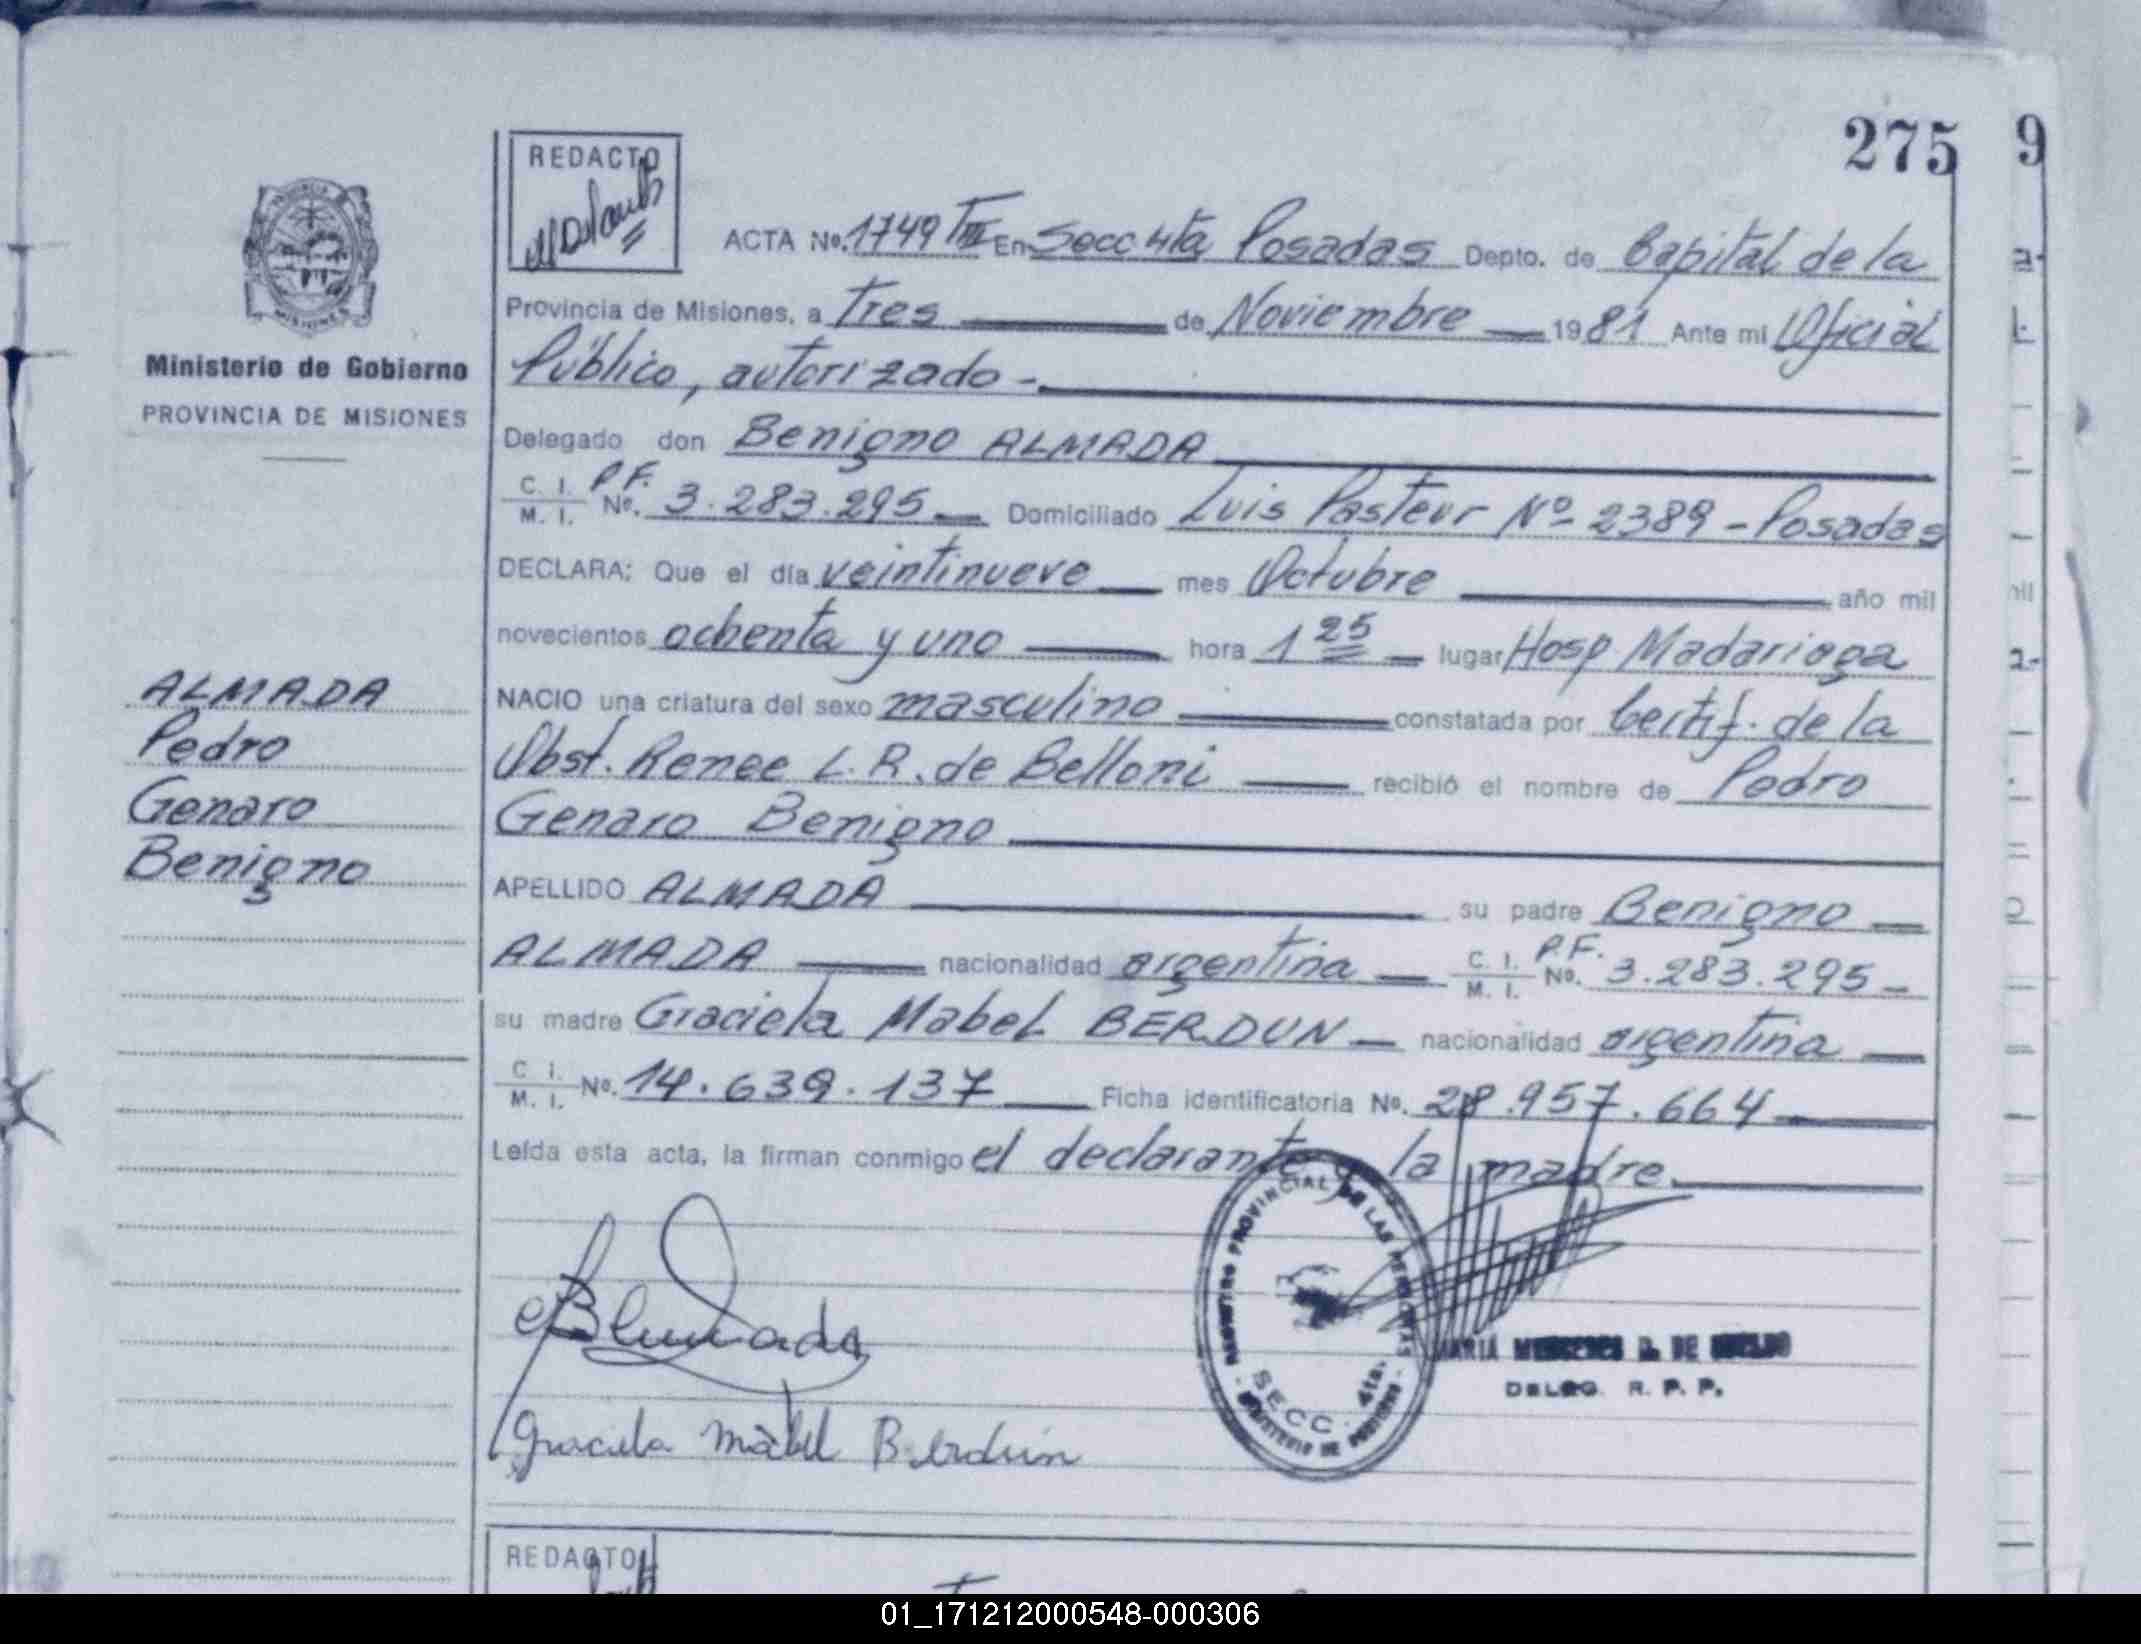 275 9
REDACTO
ACTA No. 1749 TIII En Secc 4ta Posadas Depto. de Capital de la
Provincia de Misiones, a Tres de Noviembre 1981 Ante mi Oficial
Público, autorizado -
Ministerio de Gobierno
PROVINCIA DE MISIONES
Delegado don Benigno ALMADA
C. I. M. I. P.F. No. 3.283.295 Domiciliado Luis Pasteur Nº 2389 - Posadas
DECLARA: Que el día veintinueve mes Octubre año mil
novecientos ochenta y uno hora 1 25 lugar Hosp Madariaga
NACIO una criatura del sexo masculino constatada por Certif. de la
Obst. Renee L. R. de Belloni recibió el nombre de Pedro
Genaro Benigno
ALMADA
Pedro
Genaro
Benigno
APELLIDO ALMADA su padre Benigno
ALMADA nacionalidad argentina C. I. M. I. P.F. No. 3.283.295 -
su madre Graciela Mabel BERDUN nacionalidad argentina
C. I. M. I. No. 14.639.137 Ficha identificatoria No. 28.957.664
Leída esta acta, la firman conmigo el declarante y la madre.
REGISTRO PROVINCIAL DE LAS PERSONAS
SECC. 4ta.
MINISTERIO DE POSADAS
BAlmada
MARIA MERCEDES DE
DELEG. R. P. P.
Graciela Mabel Berdún
REDACTO
01_171212000548-000306